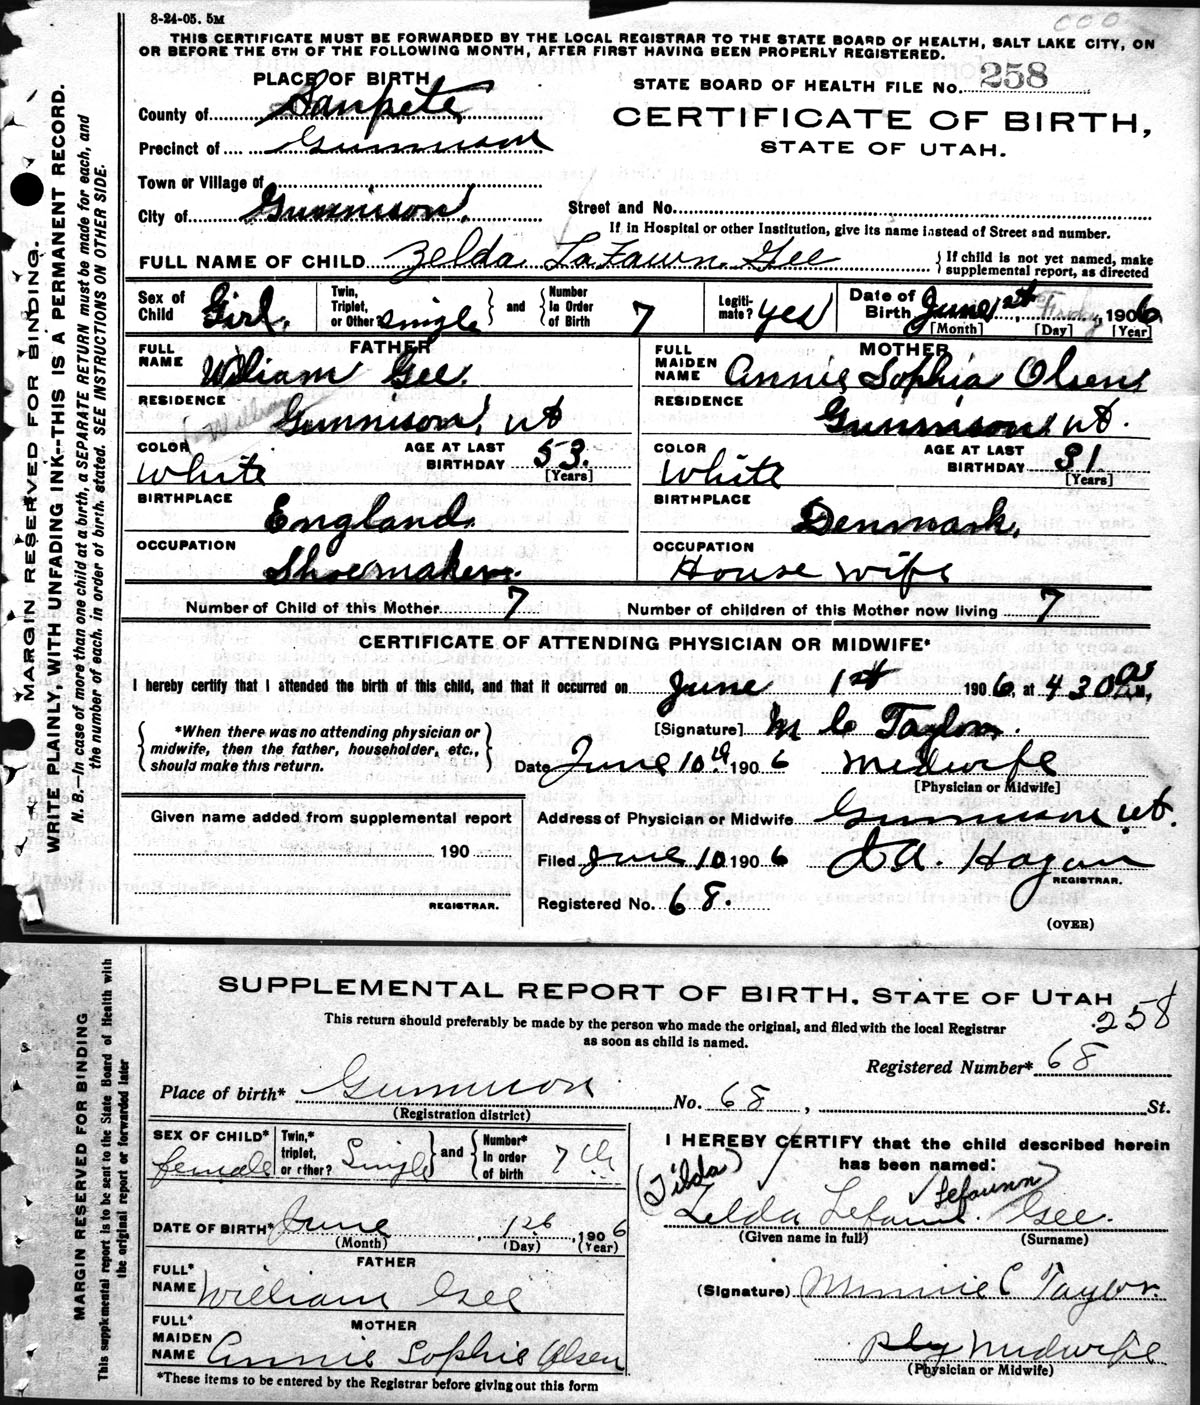 8-24-05. 5M
THIS CERTIFICATE MUST BE FORWARDED BY THE LOCAL REGISTRAR TO THE STATE BOARD OF HEALTH, SALT LAKE CITY, ON
OR BEFORE THE 5TH OF THE FOLLOWING MONTH, AFTER FIRST HAVING BEEN PROPERLY REGISTERED.
PLACE OF BIRTH
STATE BOARD OF HEALTH FILE No. 258
County of Sanpete
CERTIFICATE OF BIRTH,
Precinct of Gunnison
STATE OF UTAH.
Town or Village of
City of Gunnison.
Street and No.
If in Hospital or other Institution, give its name instead of Street and number.
FULL NAME OF CHILD Zelda LaFawn Gee
If child is not yet named, make
supplemental report, as directed
Sex of Child Girl.
Twin, Triplet, or Other single and Number In Order of Birth 7
Legitimate? yes
Date of Birth June 1st Friday, 1906
[Month] [Day] [Year]
FATHER
FULL NAME William Gee.
RESIDENCE Gunnison, ut
William
COLOR White
AGE AT LAST BIRTHDAY 53.
[Years]
BIRTHPLACE
England.
OCCUPATION
Shoemaker.
MOTHER
FULL MAIDEN NAME Annie Sophia Olsen
RESIDENCE
Gunnison, ut.
COLOR White
AGE AT LAST BIRTHDAY 31.
[Years]
BIRTHPLACE
Denmark.
OCCUPATION
House wife
Number of Child of this Mother 7
Number of children of this Mother now living 7
CERTIFICATE OF ATTENDING PHYSICIAN OR MIDWIFE*
I hereby certify that I attended the birth of this child, and that it occurred on June 1st 1906, at 430 A M,
*When there was no attending physician or
midwife, then the father, householder, etc.,
should make this return.
[Signature] M C Taylor.
Date June 10th 1906 Midwife
[Physician or Midwife]
Given name added from supplemental report
190
REGISTRAR.
Address of Physician or Midwife Gunnison ut.
Filed June 10 1906 Hagan
REGISTRAR.
Registered No. 68.
(OVER)
MARGIN RESERVED FOR BINDING.
WRITE PLAINLY, WITH UNFADING INK--THIS IS A PERMANENT RECORD.
N. B.—In case of more than one child at a birth, a SEPARATE RETURN must be made for each, and
the number of each, in order of birth, stated. SEE INSTRUCTIONS ON OTHER SIDE.
SUPPLEMENTAL REPORT OF BIRTH, STATE OF UTAH
258
This return should preferably be made by the person who made the original, and filed with the local Registrar
as soon as child is named.
Registered Number* 68
Place of birth* Gunnison No. 68, St.
(Registration district)
SEX OF CHILD* female
Twin,* triplet, or other? Single and Number* in order of birth 7th
DATE OF BIRTH* June, 1st, 1906
(Month) (Day) (Year)
FATHER
FULL* NAME William Gee
MOTHER
FULL* MAIDEN NAME Annie Sophie Olsen
*These items to be entered by the Registrar before giving out this form
I HEREBY CERTIFY that the child described herein
has been named:
(Zilda) Lefaunn)
Zelda Lefaune. Gee.
(Given name in full) (Surname)
(Signature) Minnie C Taylor.
Midwife
(Physician or Midwife)
MARGIN RESERVED FOR BINDING
This supplemental report is to be sent to the State Board of Health with
the original report or forwarded later